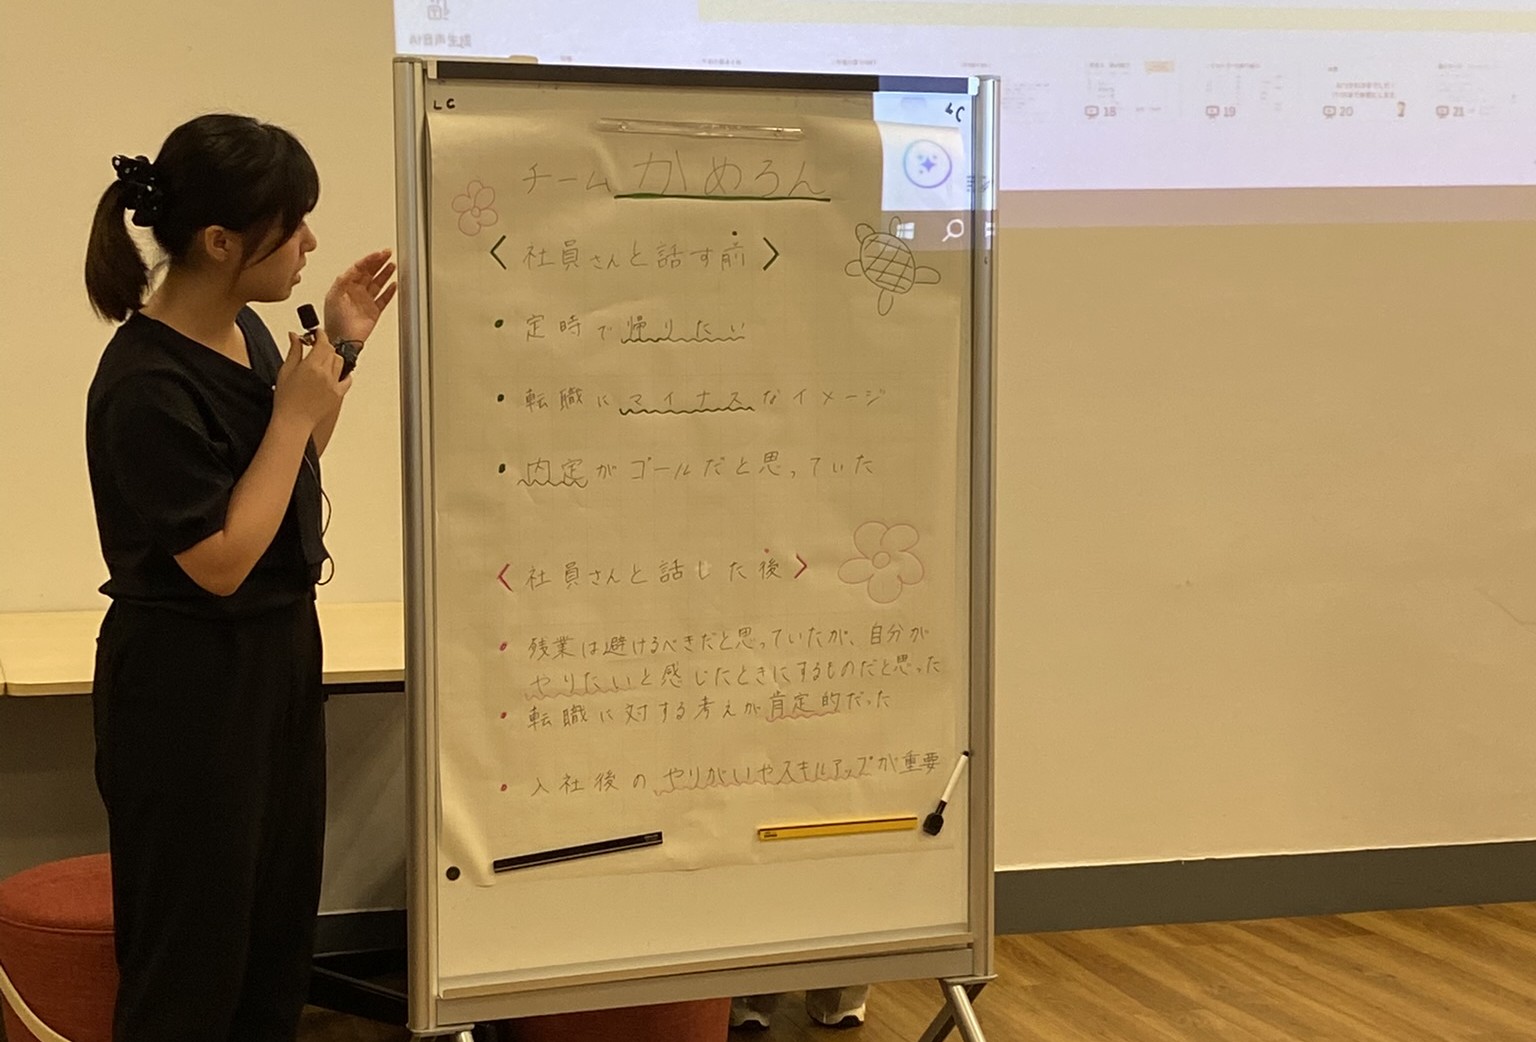 LC
チームかめろん
〈社員さんと話す前〉
・定時で帰りたい
・転職にマイナスなイメージ
・内定がゴールだと思っていた
〈社員さんと話した後〉
・残業は避けるべきだと思っていたが、自分が
やりたいと感じたときにするものだと思った
・転職に対する考えが肯定的だった
・入社後のやりがいやスキルアップが重要
18
19
20
21